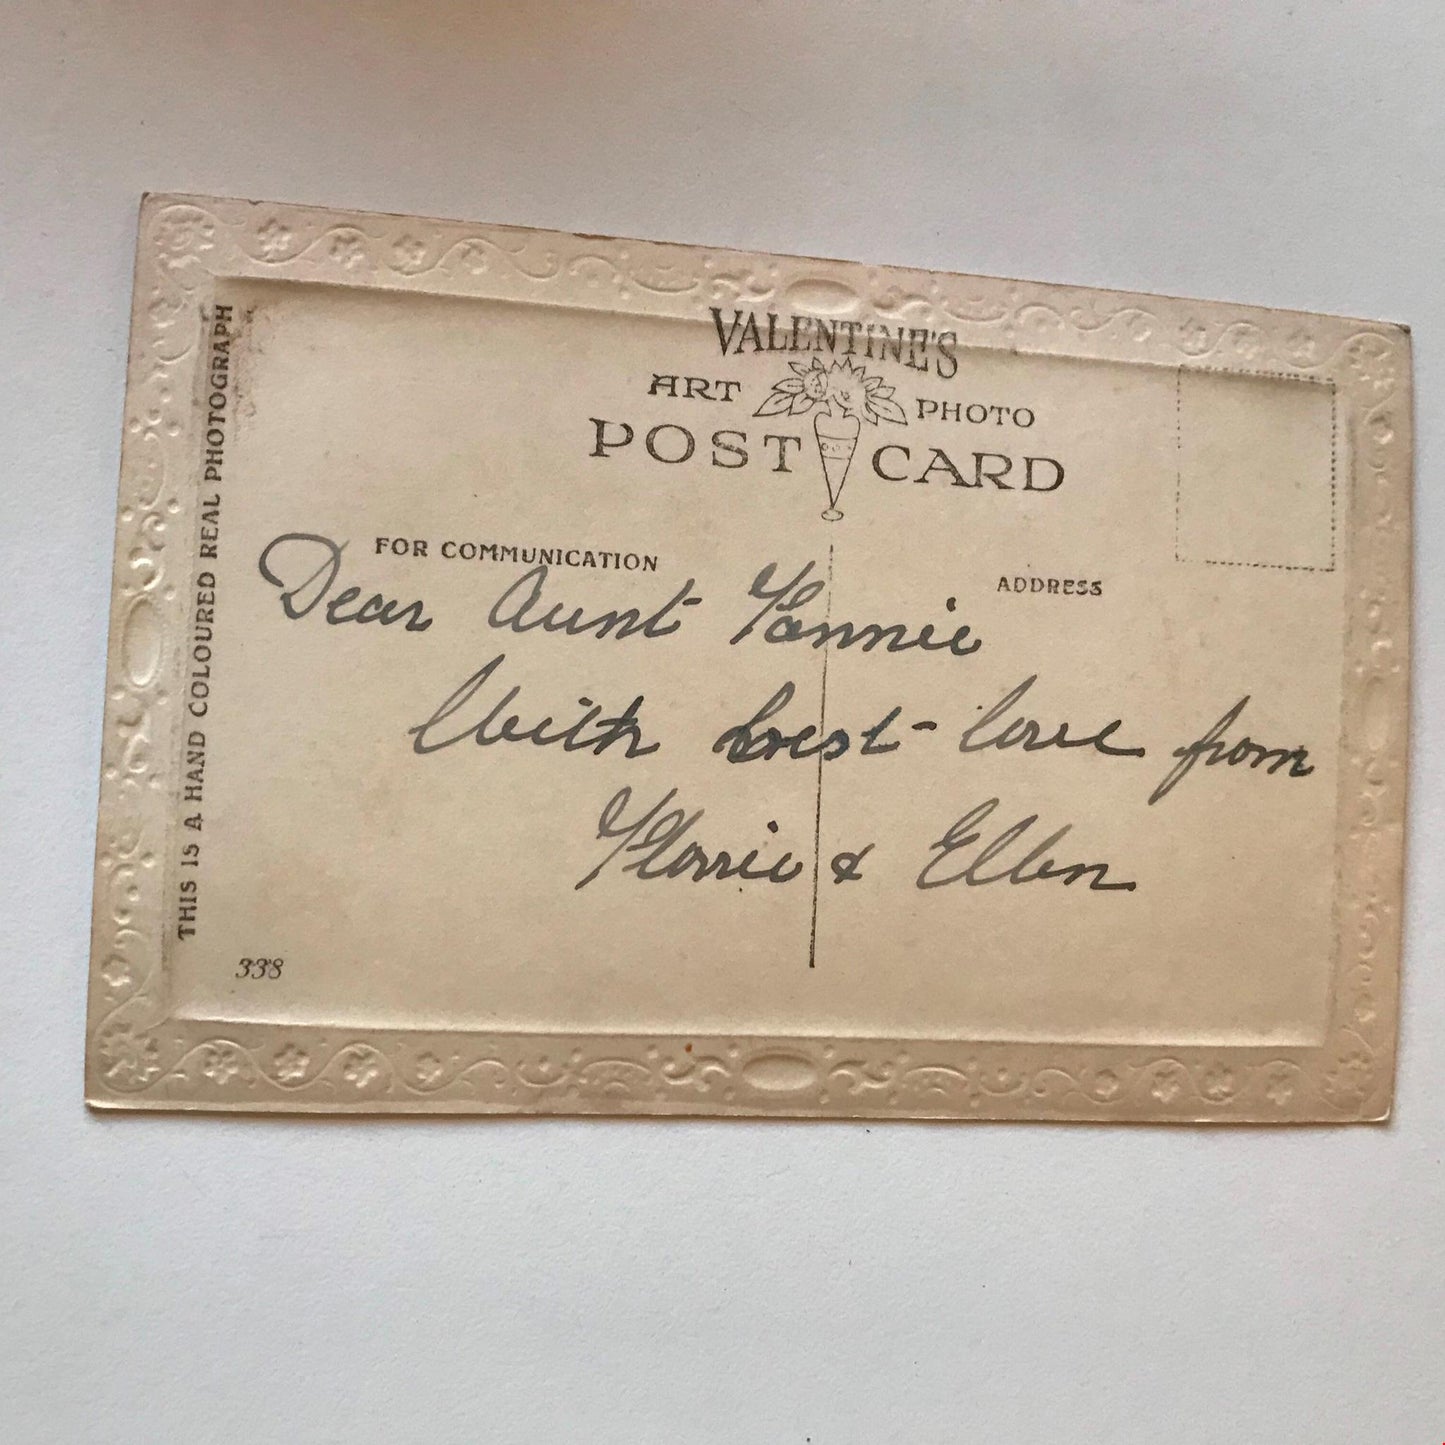 VALENTINE'S
ART PHOTO
POST CARD
FOR COMMUNICATION
ADDRESS
Dear Aunt Fannie
With best love from
Florrie & Ellen
THIS IS A HAND COLOURED REAL PHOTOGRAPH
338